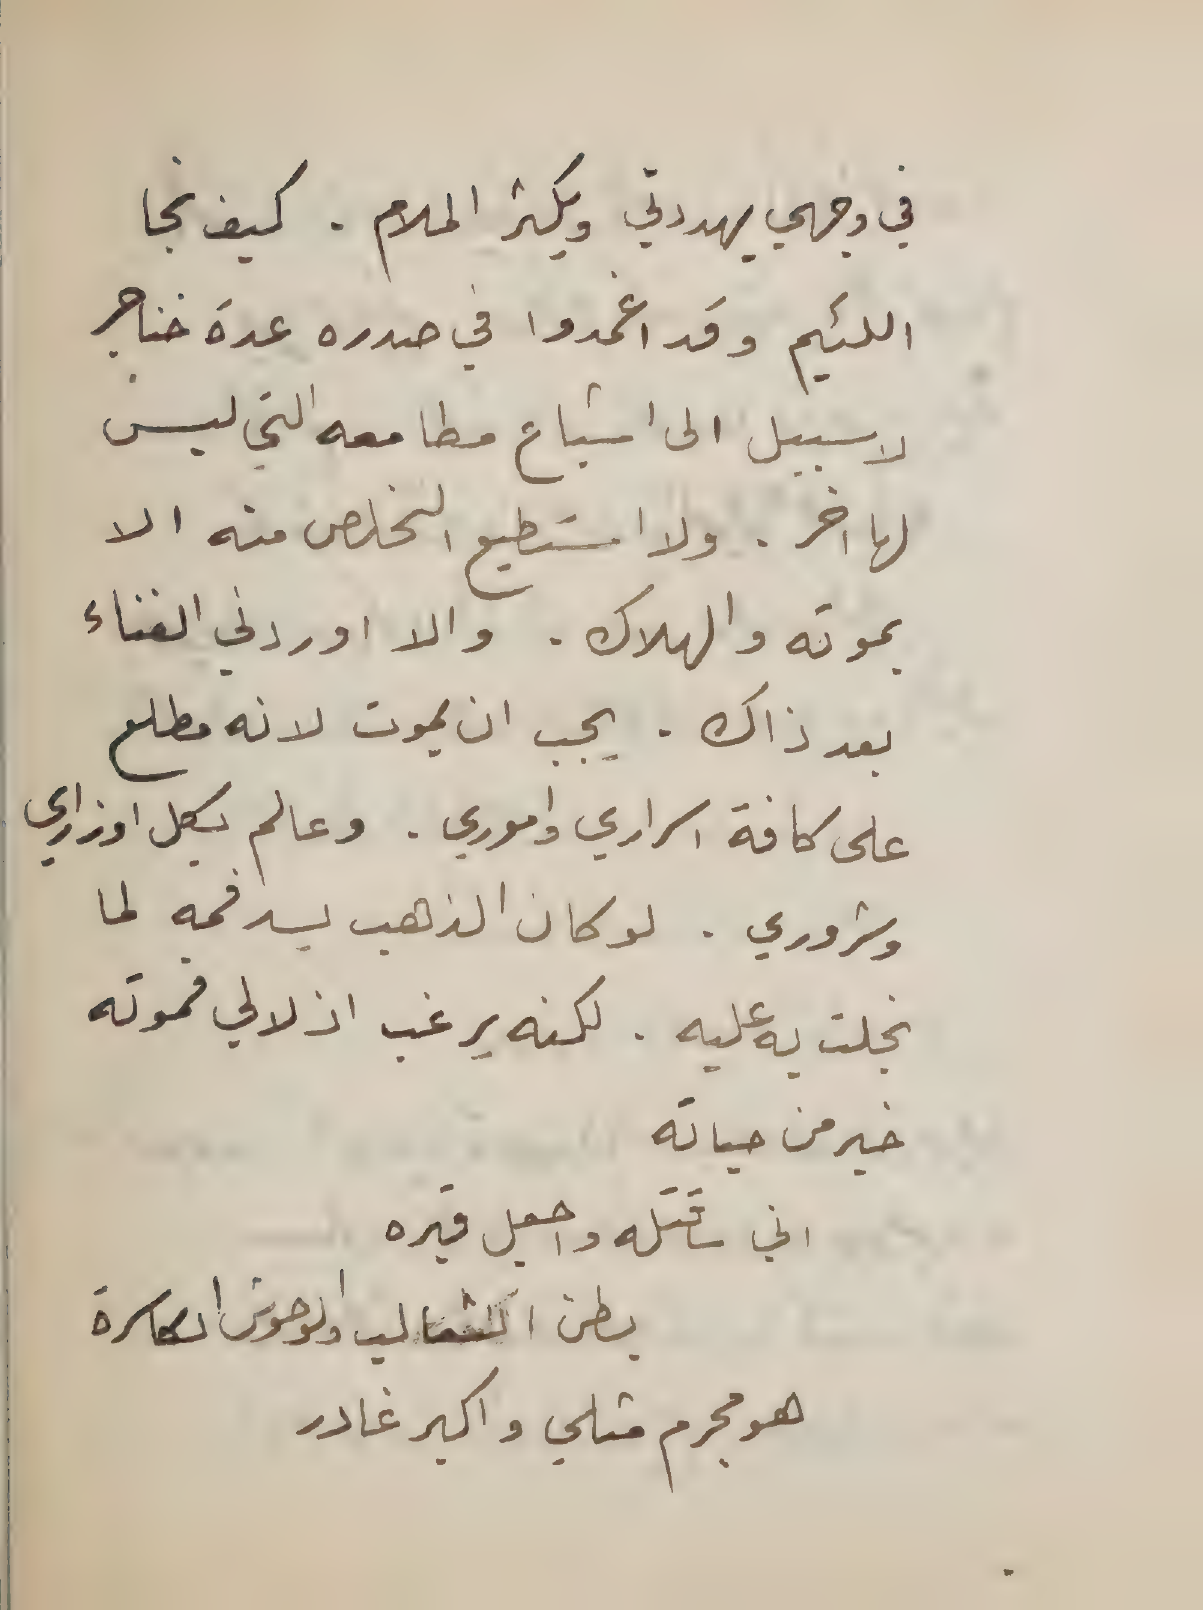 في وجهي يهددني ويكثر الملام . كيف نجا
اللئيم وقد اغمدوا في صدره عدة خناجر
لا سبيل الى اشباع مطامعه التي ليس
لها اخر . ولا استطيع التخلص منه الا
بموته والهلاك . والا اوردني الفناء
بعد ذاك . يجب ان يموت لانه مطلع
على كافة اسراري واموري . وعالم بكل اوزاري
وشروري . لو كان الذهب يسد فمه لما
بخلت به عليه . لكنه يرغب اذلالي فموته
خير من حياته
اني ساقتله واجعل قبره
بطن الثعاليب والوحوش الكاسرة
هو مجرم مثلي واكبر غادر